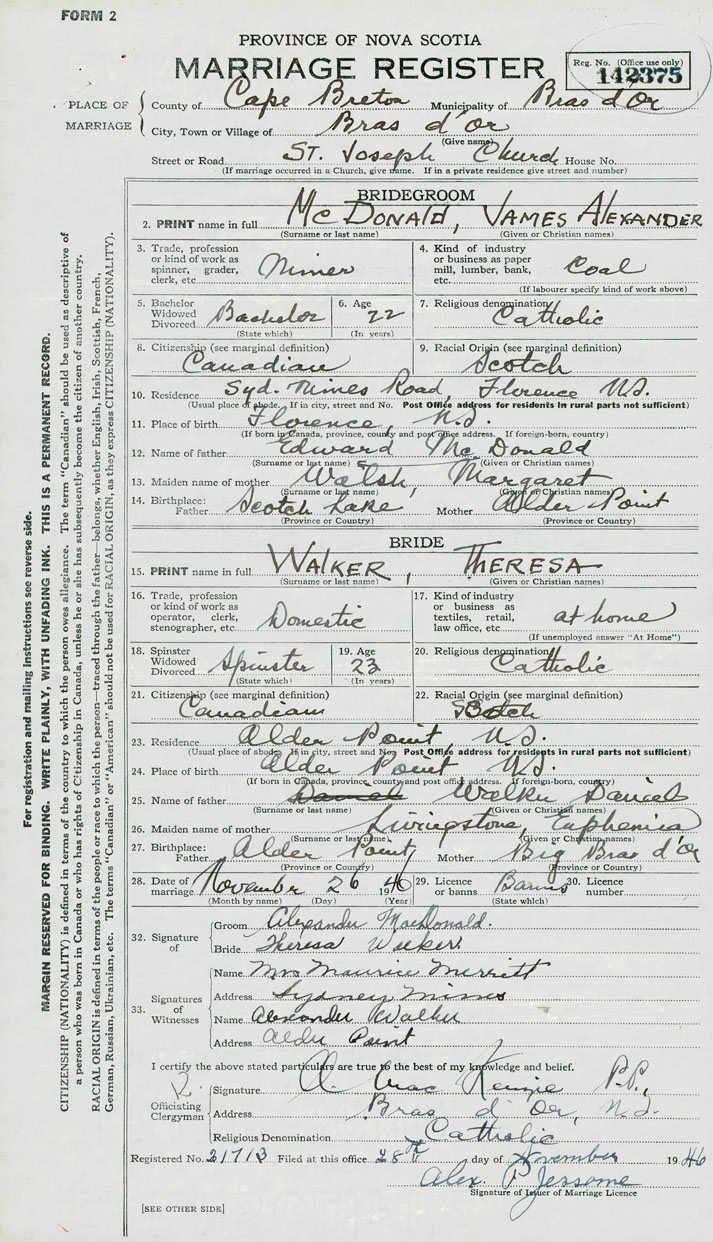 FORM 2
PROVINCE OF NOVA SCOTIA
MARRIAGE REGISTER
Reg. No. (Office use only)
142375
PLACE OF MARRIAGE
County of Cape Breton Municipality of Bras d'Or
City, Town or Village of Bras d'Or
(Give name)
Street or Road ST. Joseph Church House No.
(If marriage occurred in a Church, give name. If in a private residence give street and number)
BRIDEGROOM
2. PRINT name in full McDONALD, JAMES ALEXANDER
(Surname or last name) (Given or Christian names)
3. Trade, profession or kind of work as spinner, grader, clerk, etc. Miner
4. Kind of industry or business as paper mill, lumber, bank, etc. Coal
(If labourer specify kind of work above)
5. Bachelor Widowed Divorced Bachelor
(State which)
6. Age 22
(In years)
7. Religious denomination Catholic
8. Citizenship (see marginal definition) Canadian
9. Racial Origin (see marginal definition) Scotch
10. Residence Syd. Mines Road, Florence N.S.
(Usual place of abode. If in city, street and No. Post Office address for residents in rural parts not sufficient)
11. Place of birth Florence, N.S.
(If born in Canada, province, county and post office address. If foreign-born, country)
12. Name of father Edward McDonald
(Surname or last name) (Given or Christian names)
13. Maiden name of mother Walsh, Margaret
(Surname or last name) (Given or Christian names)
14. Birthplace: Father Scotch Lake Mother Alder Point
(Province or Country) (Province or Country)
BRIDE
15. PRINT name in full WALKER, THERESA
(Surname or last name) (Given or Christian names)
16. Trade, profession or kind of work as operator, clerk, stenographer, etc. Domestic
17. Kind of industry or business as textiles, retail, law office, etc. at home
(If unemployed answer "At Home")
18. Spinster Widowed Divorced Spinster
(State which)
19. Age 23
(In years)
20. Religious denomination Catholic
21. Citizenship (see marginal definition) Canadian
22. Racial Origin (see marginal definition) Scotch
23. Residence Alder Point, N.S.
(Usual place of abode. If in city, street and No. Post Office address for residents in rural parts not sufficient)
24. Place of birth Alder Point N.S.
(If born in Canada, province, county and post office address. If foreign-born, country)
25. Name of father Daniel Walker Daniel
(Surname or last name) (Given or Christian names)
26. Maiden name of mother Livingstone, Euphemia
(Surname or last name) (Given or Christian names)
27. Birthplace: Father Alder Point, Mother Big Bras d'Or
(Province or Country) (Province or Country)
28. Date of marriage November 26 1946
(Month by name) (Day) (Year)
29. Licence or banns Banns
(State which)
30. Licence number
32. Signature of
Groom Alexander MacDonald.
Bride Theresa Walker.
33. Signatures of Witnesses
Name Mrs Maurice Merritt
Address Sydney Mines
Name Alexander Walker
Address Alder Point
I certify the above stated particulars are true to the best of my knowledge and belief.
Officiating Clergyman
Signature A. MacKenzie P.P.,
Address Bras d'Or, N.S.
Religious Denomination Catholic
Registered No. 21713 Filed at this office 28th day of November 1946
Alex. P. Jessome
Signature of Issuer of Marriage Licence
[SEE OTHER SIDE]
For registration and mailing instructions see reverse side.
MARGIN RESERVED FOR BINDING. WRITE PLAINLY, WITH UNFADING INK. THIS IS A PERMANENT RECORD.
CITIZENSHIP (NATIONALITY) is defined in terms of the country to which the person owes allegiance. The term "Canadian" should be used as descriptive of
a person who was born in Canada or who has rights of Citizenship in Canada, unless he or she has subsequently become the citizen of another country.
RACIAL ORIGIN is defined in terms of the people or race to which the person—traced through the father—belongs, whether English, Irish, Scottish, French,
German, Russian, Ukrainian, etc. The terms "Canadian" or "American" should not be used for RACIAL ORIGIN, as they express CITIZENSHIP (NATIONALITY).